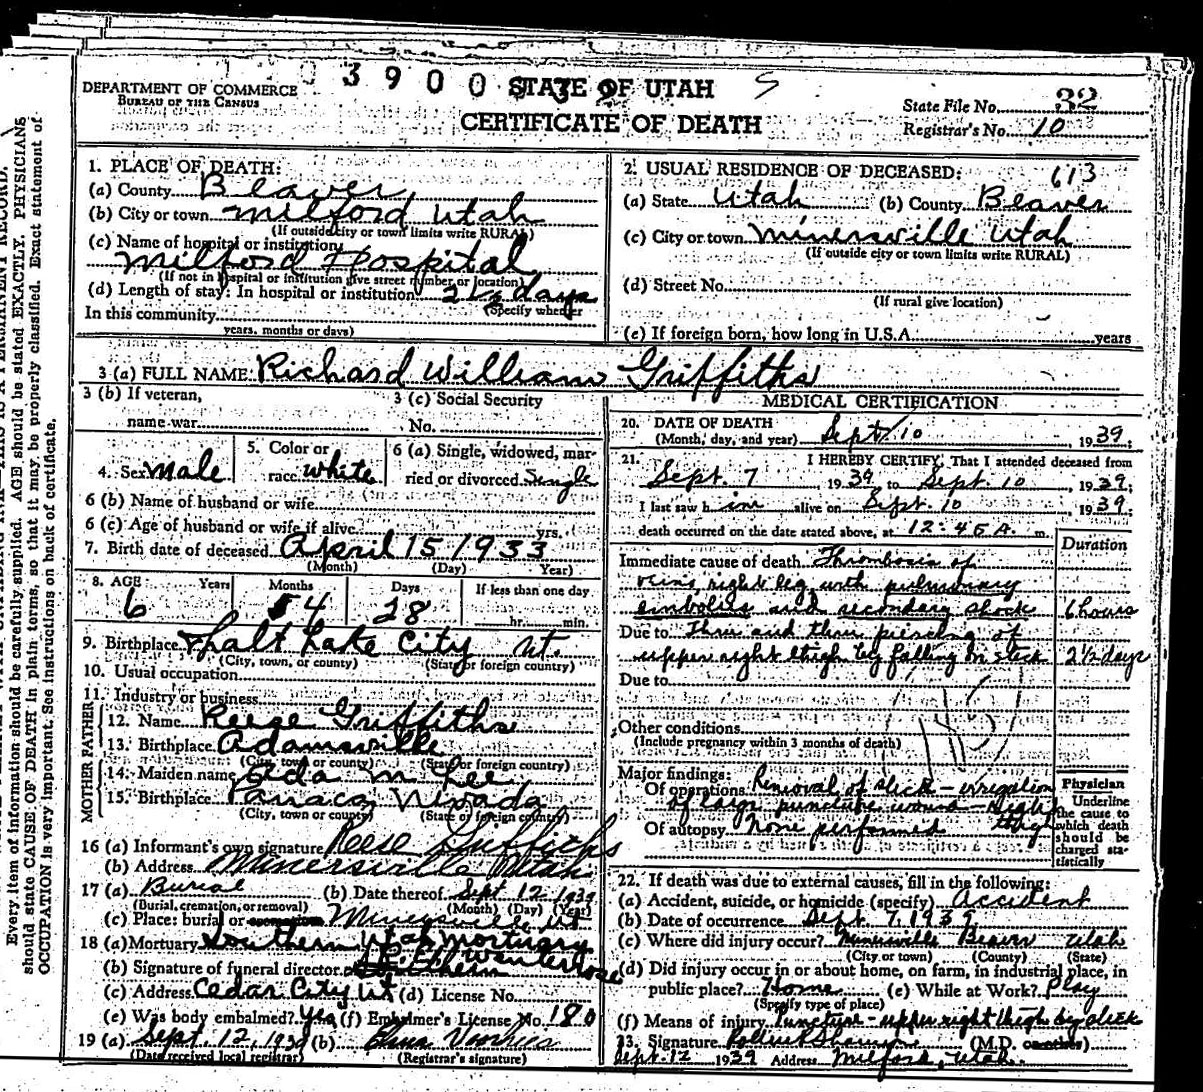 3 9 0 0
DEPARTMENT OF COMMERCE
BUREAU OF THE CENSUS
STATE OF UTAH
CERTIFICATE OF DEATH
State File No. 32
Registrar's No. 10
1. PLACE OF DEATH:
(a) County Beaver
(b) City or town Milford Utah
(If outside city or town limits write RURAL)
(c) Name of hospital or institution
Milford Hospital
(If not in hospital or institution give street number or location)
(d) Length of stay: In hospital or institution 2 1/2 days
(Specify whether
In this community
years, months or days)
2. USUAL RESIDENCE OF DECEASED: 613
(a) State Utah (b) County Beaver
(c) City or town Minersville Utah
(If outside city or town limits write RURAL)
(d) Street No.
(If rural give location)
(e) If foreign born, how long in U.S.A. years
3 (a) FULL NAME Richard William Griffiths
3 (b) If veteran,
name war
3 (c) Social Security
No.
4. Sex Male
5. Color or
race white
6 (a) Single, widowed, mar-
ried or divorced Single
6 (b) Name of husband or wife
6 (c) Age of husband or wife if alive yrs.
7. Birth date of deceased April 15 1933
(Month) (Day) Year)
8. AGE Years Months Days If less than one day
6 4 28 hr. min.
9. Birthplace Salt Lake City Ut.
(City, town, or county) (State or foreign country)
10. Usual occupation
11. Industry or business
FATHER
12. Name Reese Griffiths
13. Birthplace Adamsville
(City, town or county) (State or foreign country)
MOTHER
14. Maiden name Ada M Lee
15. Birthplace Panaca, Nevada
(City, town or county) (State or foreign country)
16 (a) Informant's own signature Reese Griffiths
(b) Address Minersville Utah
17 (a) Burial (b) Date thereof Sept 12 1939
(Burial, cremation, or removal) (Month) (Day) (Year)
(c) Place: burial or cremation Minersville, Ut
18 (a) Mortuary Southern Utah Mortuary
(b) Signature of funeral director
(c) Address Cedar City Ut (d) License No.
(e) Was body embalmed? Yes (f) Embalmer's License No. 180
19 (a) Sept. 12, 1939 (b) Voorhees
(Date received local registrar) (Registrar's signature)
MEDICAL CERTIFICATION
20. DATE OF DEATH
(Month, day, and year) Sept/10 1939;
21. I HEREBY CERTIFY, That I attended deceased from
Sept 7 1939 to Sept. 10, 1939.
I last saw him alive on Sept. 10, 1939.
death occurred on the date stated above, at 12:45 A. m.
Duration
Immediate cause of death Thrombosis of
veins, right leg with pulmonary
embolus and secondary shock 6 hours
Due to Thru and thru piercing of
upper right thigh by falling on stick 2 1/2 days
Due to
Other conditions
(Include pregnancy within 3 months of death)
Major findings:
Of operations Removal of stick - irrigation
of large puncture wound - right
thigh
Of autopsy None performed
Physician
Underline
the cause to
which death
should be
charged sta-
tistically
22. If death was due to external causes, fill in the following:
(a) Accident, suicide, or homicide (specify) Accident
(b) Date of occurrence Sept. 7, 1939
(c) Where did injury occur? Minersville Beaver Utah
(City or town) (County) (State)
(d) Did injury occur in or about home, on farm, in industrial place, in
public place? Home (e) While at Work? Play
(Specify type of place)
(f) Means of injury Puncture - upper right thigh by stick
23. Signature (M.D. or other)
Sept. 12 1939 Address Milford, Utah.
Every item of information should be carefully supplied. AGE should be stated EXACTLY. PHYSICIANS
should state CAUSE OF DEATH in plain terms, so that it may be properly classified. Exact statement of
OCCUPATION is very important. See instructions on back of certificate.